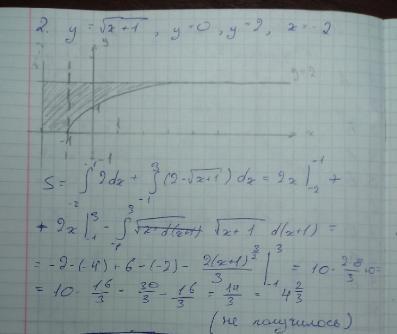 2. y = √(x+1) , y=0, y=2, x=-2
y
y=2
x
-1
-1
S= ∫₋₂⁻¹ 2dx + ∫₋₁³ (2-√(x+1)) dx = 2x |₋₂⁻¹ +
+ 2x |₋₁³ - ∫₋₁³ √(x+1) d(x+1) =
= -2-(-4)+6-(-2) - 2(x+1)^(3/2)/3 |₋₁³ = 10 - 2·8/3
= 10 - 16/3 = 30/3 - 16/3 = 14/3 = 4 2/3
(не получилось)